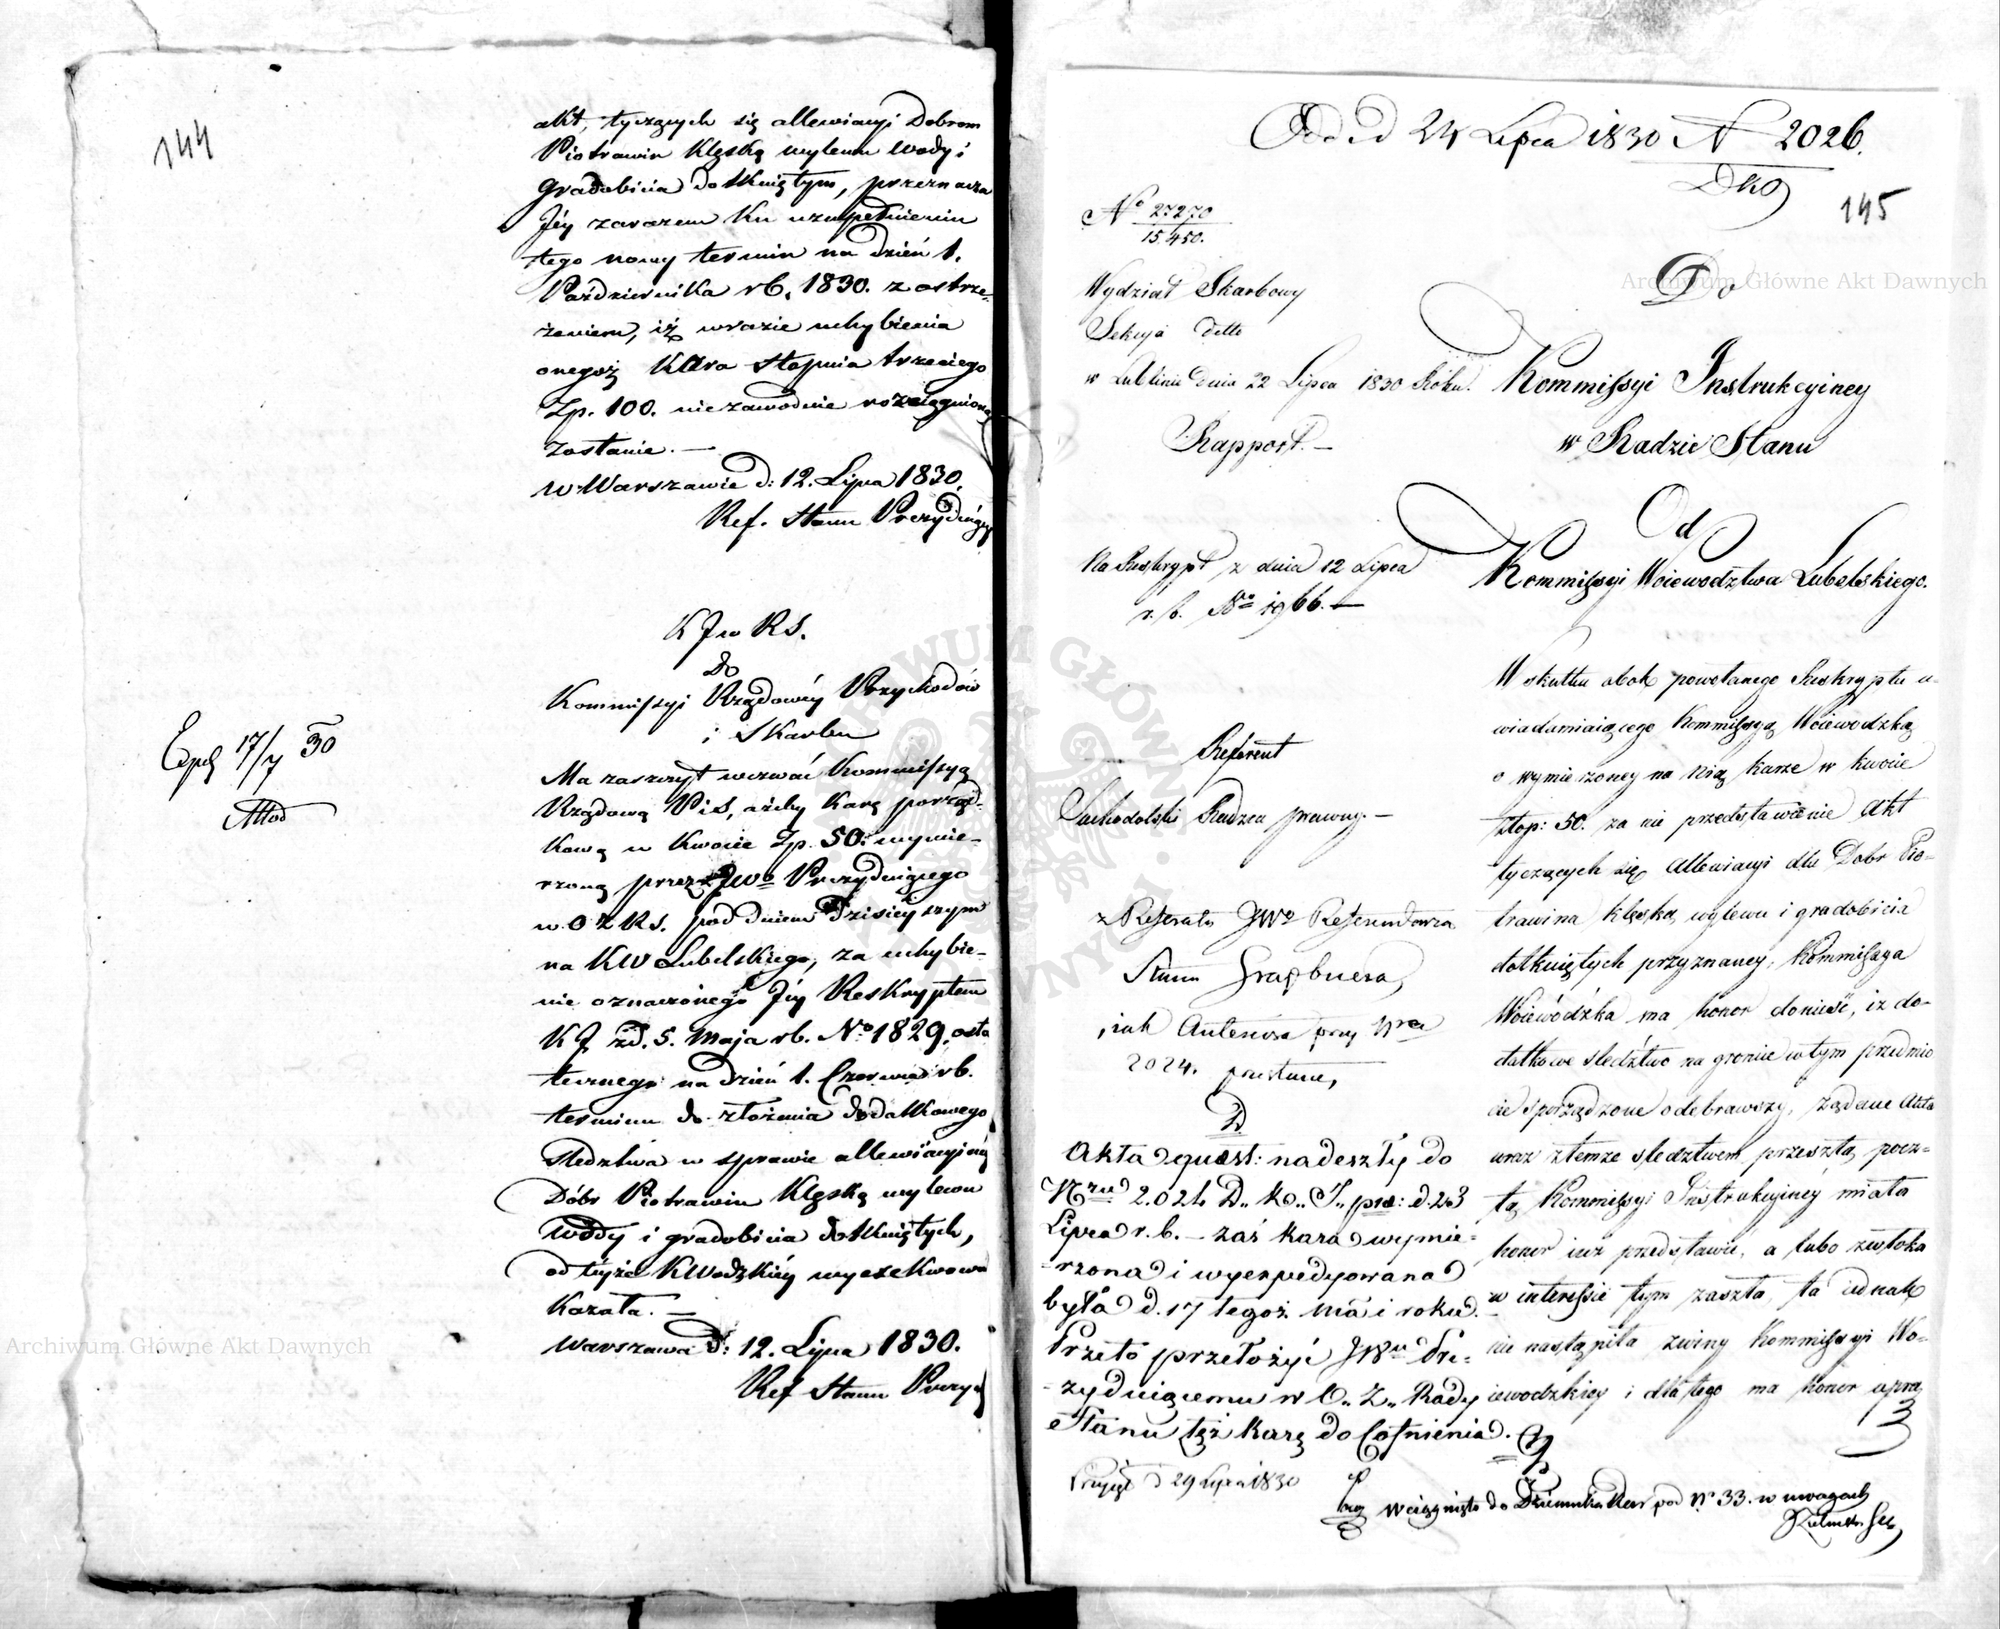 144
akt, tyczących się allewiacyi Dobrom
Piotrawin klęską wylewu wody i
gradobicia dotkniętym, przeznacza
Jéy zarazem ku uzupełnieniu
tego nowy termin na dzień 1.
Października rb. 1830. z ostrze-
żeniem, iż w razie uchybienia
onegoż kara stopnia trzeciego
Zp. 100. niezawodnie rozciągnioną
zostanie. —
w Warszawie d: 12. Lipca 1830.
Ref. Stanu Prezyduiący
K J w RS.
do
Kommissyi Rządowéy Przychodów
i Skarbu
Exped 17/7 30
Ma zaszczyt wezwać Kommissyą
Rządową PiS, ażeby karę porząd-
kową w kwocie Zp. 50. wymie-
rzoną przez JWo Prezyduiącego
w O Z Rs. pod dniem dzisieyszym
na KW Lubelskiego, za uchybie-
nie oznaczonego Jéy Reskryptem
K J zd. 5. Maja rb. No 1829. osta
tecznego na dzień 1. Czerwca rb.
terminu do złożenia dodatkowego
śledztwa w sprawie allewiacyinéy
Dóbr Piotrawin klęską wylewu
wody i gradobicia dotkniętych,
od teyże KWodzkiéy wyexekwować
kazała. —
Warszawa d: 12. Lipca 1830.
Ref Stanu Prezyd
Odd d 24 Lipca 1830 N 2026.
DKJ
145
No 27270
15,450.
Wydział Skarbowy
Sekcya Dttto
w Lublinie dnia 22 Lipca 1830 Roku.
Rapport. —
Do
Kommissyi Instrukcyiney
w Radzie Stanu
Od
Kommissyi Woiewodztwa Lubelskiego.
Na Reskrypt z dnia 12 Lipca
r. b. No 1966. —
Referent
Suchodolski Radzca prawny. —
z Referatu JWo Referendarza
Stanu Graybnera,
iak Antenna przy Nrze
2024.
Akta quaest: nadeszły do
Nru 2.024 D. K. I. prae: d. 23
Lipca r. b. — zaś kara wymie-
rzona i wyexpedyowana
była d. 17 tegoż ma i roku. —
Przeto przełożyć JWu Pre-
zyduiącemu w O. Z. Rady
Stanu też karę do Cofnienia.
Przyjął d 29 Lipca 1830
W skutku obok powołanego Reskryptu u-
wiadamiaiącego Kommissyą Woiewodzką
o wymierzoney na nią karze w kwocie
złop: 50. za nie przedstawienie Akt
tyczących się Allewiacyi dla Dobr Pio-
trawina klęską wylewu i gradobicia
dotkniętych przyznaney, Kommissya
Woiewódzka ma honor donieść, iż do-
datkowe śledztwo na groncie w tym przedmio
cie sporządzone odebrawszy, żądane Akta
wraz z temże śledztwem przeszłą pocz-
tą Kommissyi Instrukcyiney miała
honor iuż przedstawić, a lubo zwłoka
w interessie tym zaszła, ta iednak
nie nastąpiła z winy Kommissyi Wo-
iewodzkiey i dla tego ma honor upra
wciągnięto do Dziennika Kar pod No 33. w uwagach